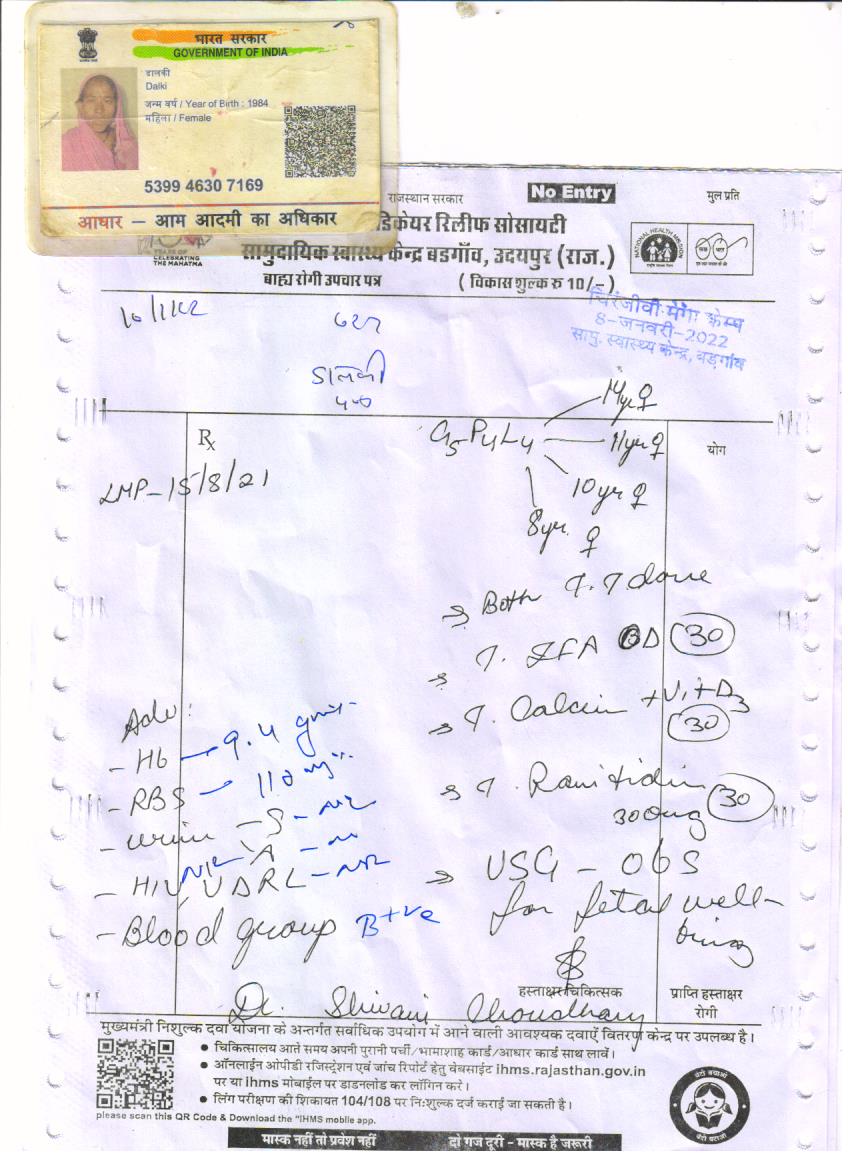 भारत सरकार
GOVERNMENT OF INDIA
डालकी
Dalki
जन्म वर्ष / Year of Birth : 1984
महिला / Female
5399 4630 7169
आधार – आम आदमी का अधिकार
राजस्थान सरकार
No Entry
मुल प्रति
डिकेयर रिलीफ सोसायटी
सामुदायिक स्वास्थ्य केन्द्र बडगाँव, उदयपुर (राज.)
बाह्य रोगी उपचार पत्र ( विकास शुल्क रु 10/- )
YEARS OF
CELEBRATING
THE MAHATMA
NATIONAL HEALTH MISSION
चिरंजीवी मेगा केम्प
8-जनवरी-2022
सामु. स्वास्थ्य केन्द्र, बड़गांव
डालकी
Rx
योग
G5P4L4
14yr ♀
11yr ♀
10yr ♀
8yr. ♀
LMP-15/8/21
Both T.T done
T. IFA BD 30
T. Calcium + Vit D3
30
T. Ranitidin 30
300mg
USG - OBS
for fetal well-
being
Adv:
- Hb 9.4 gm%
- RBS 110 mg%
- urine - S - Nil
A - N
- HIV NR VDRL - NR
- Blood group B+ve
हस्ताक्षर चिकित्सक
प्राप्ति हस्ताक्षर
रोगी
Dr. Shivani Choudhary
मुख्यमंत्री निशुल्क दवा योजना के अन्तर्गत सर्वाधिक उपयोग में आने वाली आवश्यक दवाऐं वितरण केन्द्र पर उपलब्ध है।
● चिकित्सालय आते समय अपनी पुरानी पर्ची/भामाशाह कार्ड/आधार कार्ड साथ लावें।
● ऑनलाईन ओपीडी रजिस्ट्रेशन एवं जांच रिपोर्ट हेतु वेबसाईट ihms.rajasthan.gov.in
पर या ihms मोबाईल पर डाउनलोड कर लॉगिन करे।
● लिंग परीक्षण की शिकायत 104/108 पर निःशुल्क दर्ज कराई जा सकती है।
please scan this QR Code & Download the "IHMS mobile app.
बेटी बचाओ
बेटी पढ़ाओ
मास्क नहीं तो प्रवेश नहीं
दो गज दूरी - मास्क है जरूरी